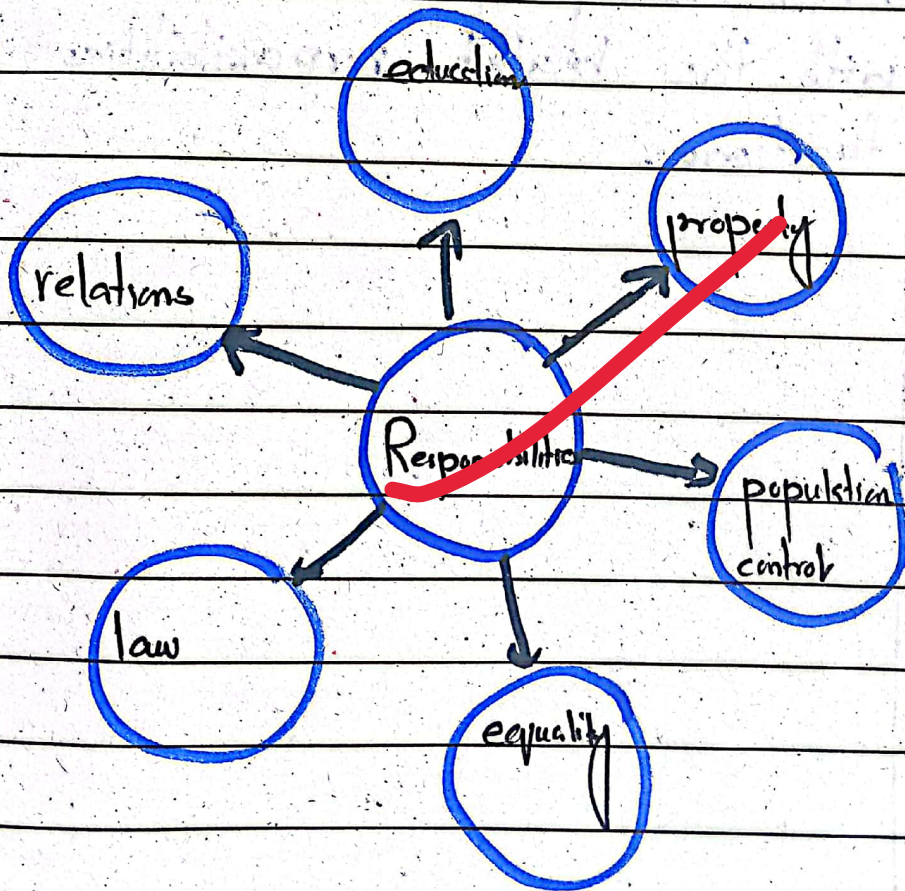 education
property
relations
Responsibilities
population
control
law
equality